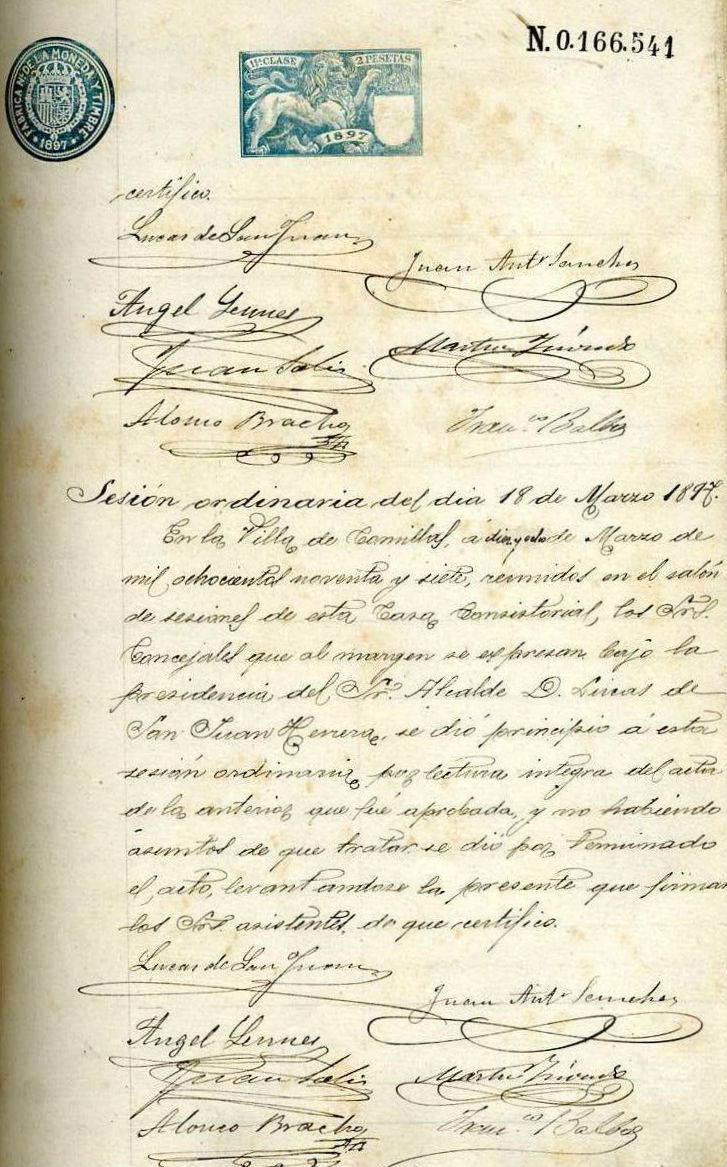 N. 0.166.541
FABRICA NAL DE LA MONEDA Y TIMBRE
1897
11ª CLASE 2 PESETAS
1897
certifico.
Lucas de San Juan
Juan Antº Sanchez
Angel
Juan Solis
Martin
Alonso Bracho
Franco Balbas
Sesión ordinaria del dia 18 de Marzo 1897.
En la Villa de Comillas, á diez y ocho de Marzo de
mil ochocientos noventa y siete, reunidos en el salón
de sesiones de esta Casa Consistorial, los Srs.
Concejales que al margen se expresan bajo la
presidencia del Sr. Alcalde D. Lucas de
San Juan Herrera, se dió principio á esta
sesión ordinaria por lectura integra del acta
de la anterior que fué aprobada, y no habiendo
ásuntos de que tratar se dio por Terminado
el acto, levantandose la presente que firman
los Srs. asistentes, de que certifico.
Lucas de San Juan
Juan Antº Sanchez
Angel
Juan Solis
Martin
Alonso Bracho
Franco Balbas